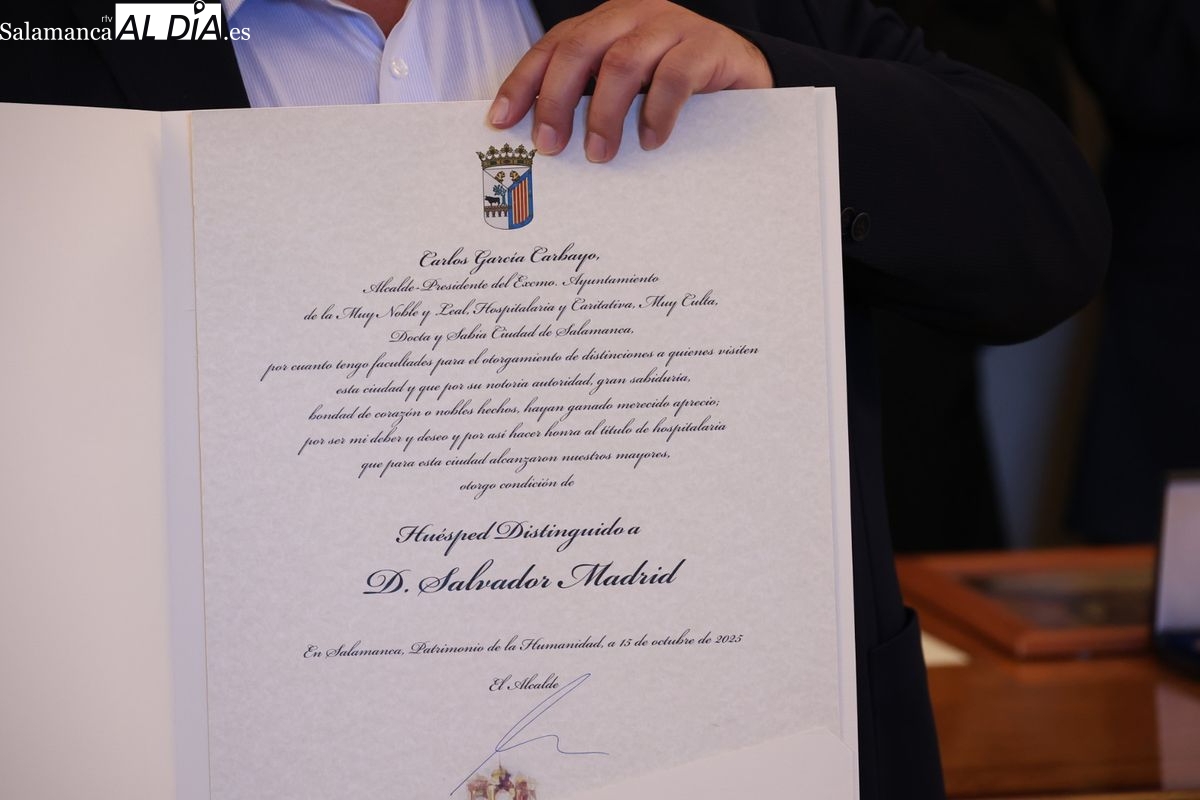 rtv
Salamanca AL DÍA.es
Carlos García Carbayo,
Alcalde-Presidente del Excmo. Ayuntamiento
de la Muy Noble y Leal, Hospitalaria y Caritativa, Muy Culta,
Docta y Sabia Ciudad de Salamanca,
por cuanto tengo facultades para el otorgamiento de distinciones a quienes visiten
esta ciudad y que por su notoria autoridad, gran sabiduría,
bondad de corazón o nobles hechos, hayan ganado merecido aprecio;
por ser mi deber y deseo y por así hacer honra al título de hospitalaria
que para esta ciudad alcanzaron nuestros mayores,
otorgo condición de
Huésped Distinguido a
D. Salvador Madrid
En Salamanca, Patrimonio de la Humanidad, a 15 de octubre de 2025
El Alcalde